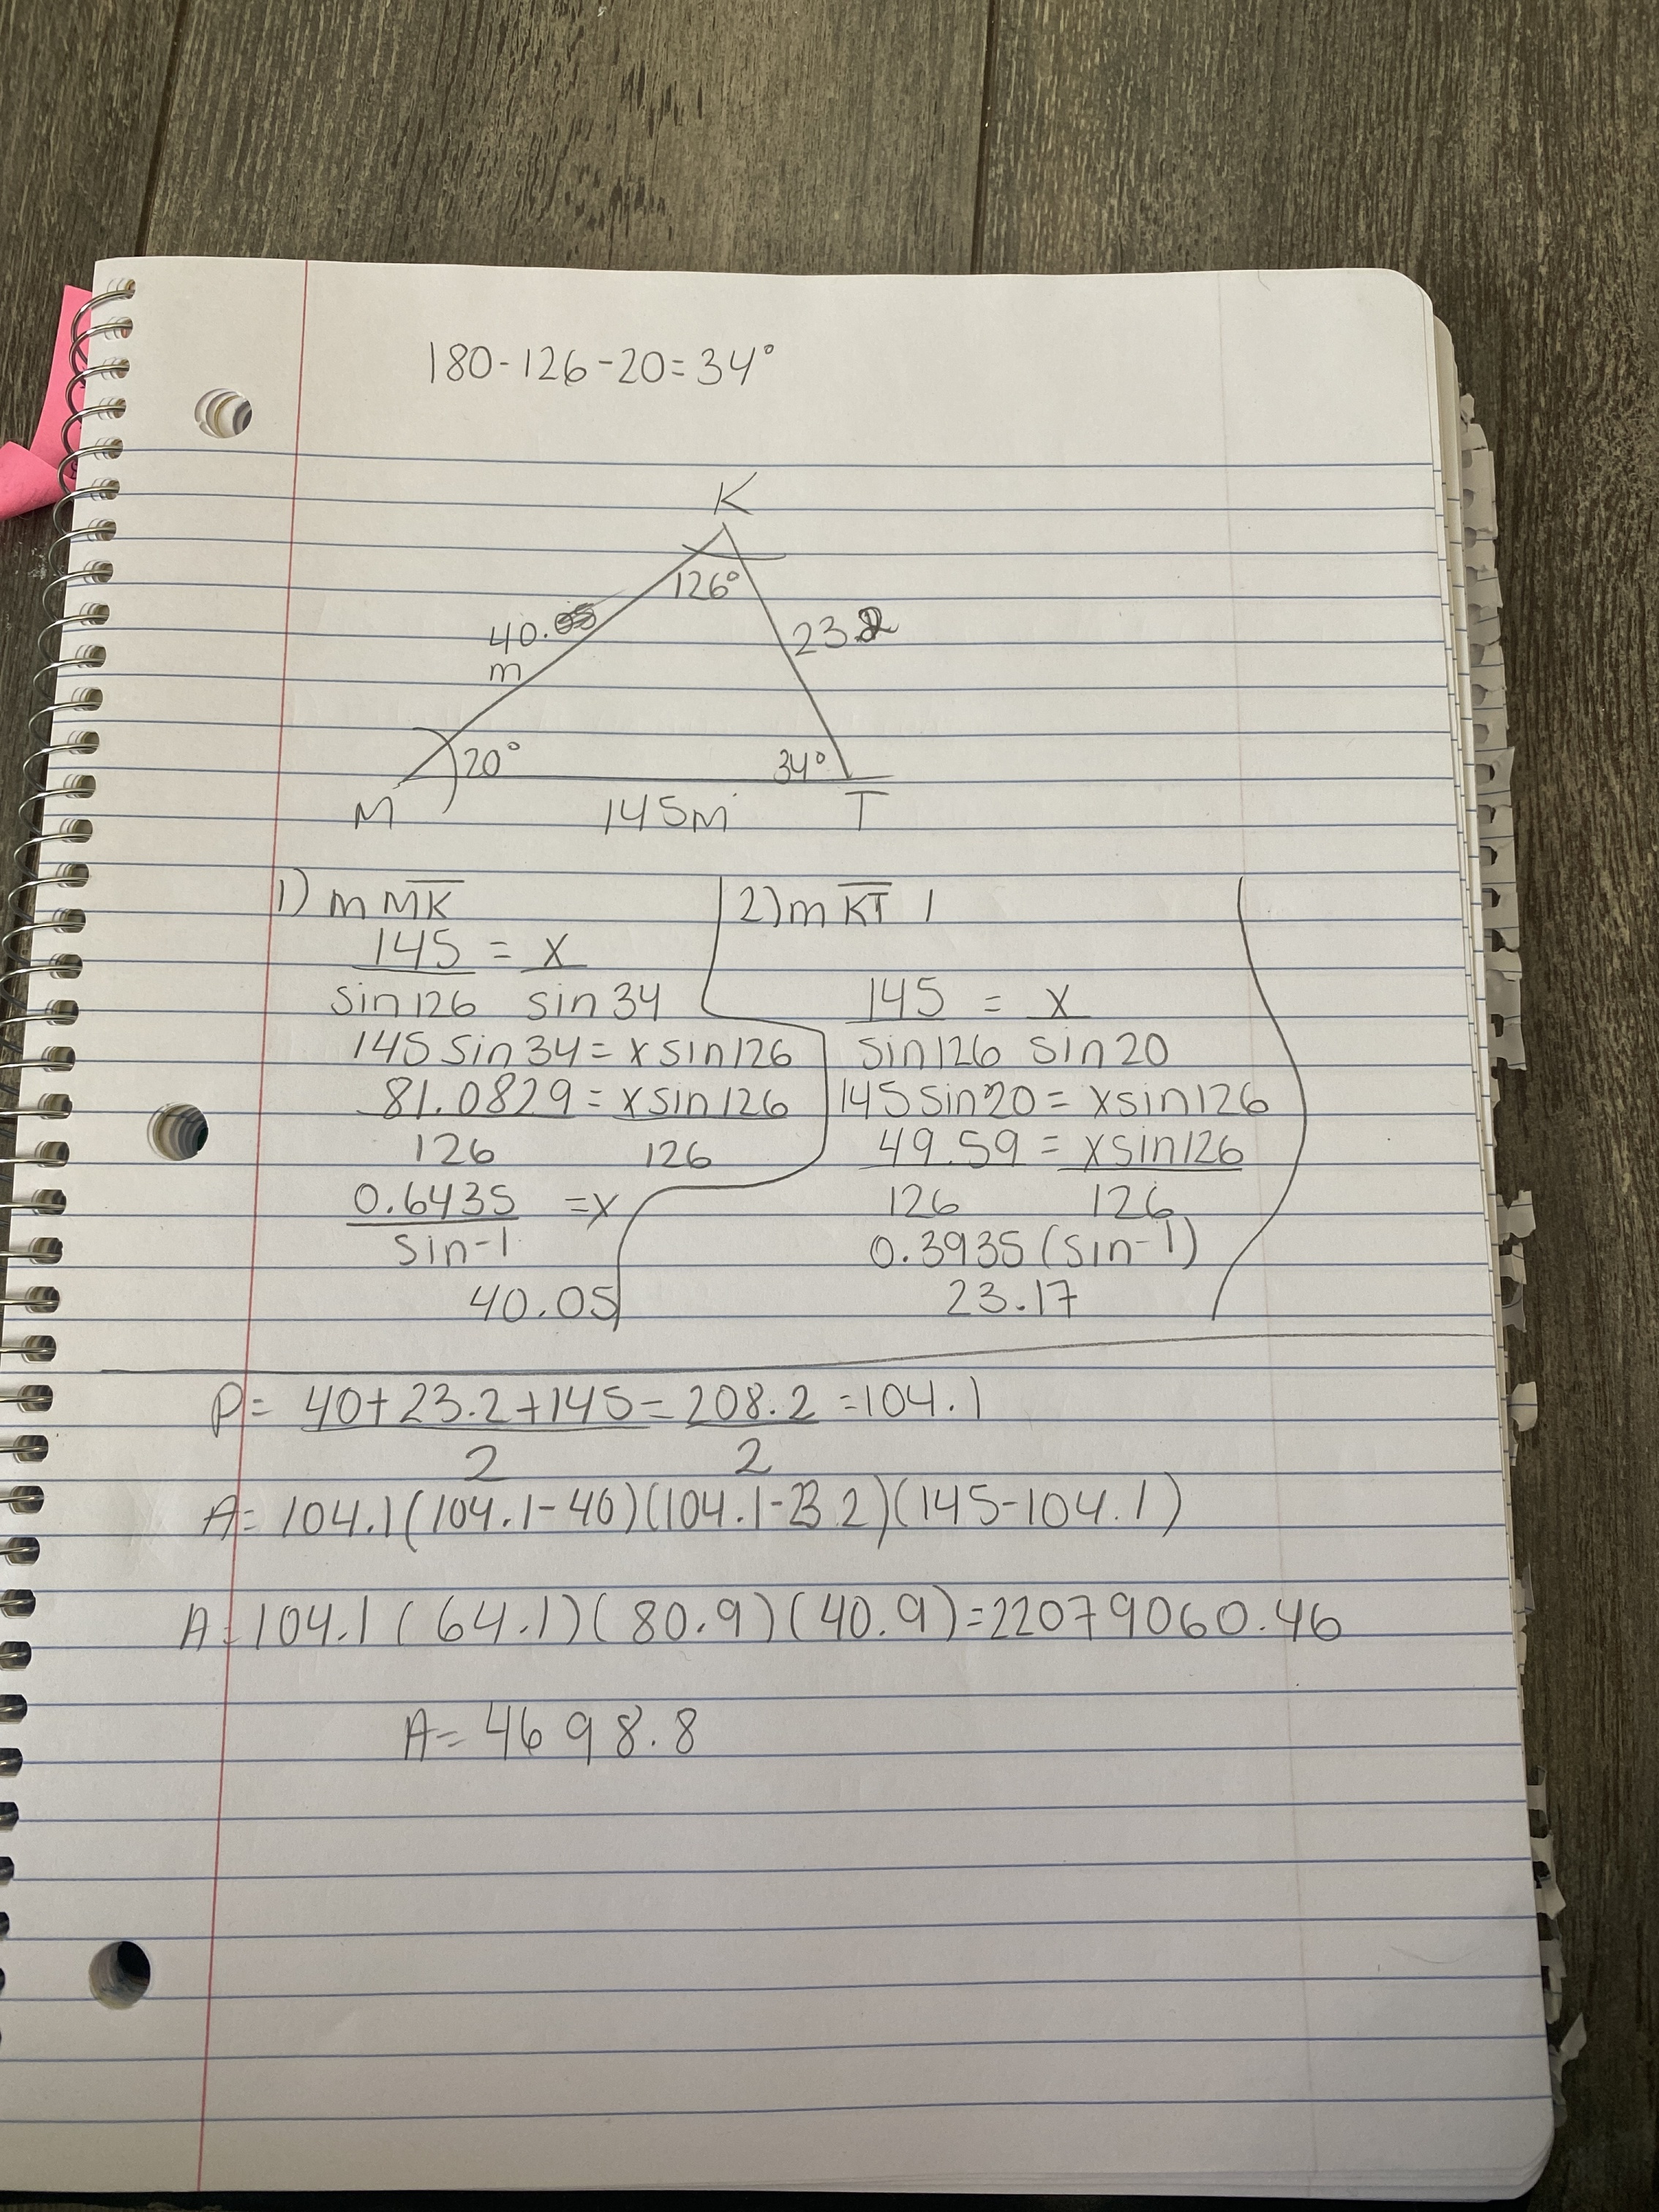 180-126-20=34°
K
126°
40.
m
23.2
20°
34°
M
145m
T
1) m MK
145 = x
sin126 sin 34
145 sin 34 = x sin 126
81.0829 = x sin 126
126 126
0.6435 = x
sin-1
40.05
2) m KT
145 = x
sin126 sin 20
145 sin 20 = x sin 126
49.59 = x sin 126
126 126
0.3935 (sin-1)
23.17
P= 40+23.2+145 = 208.2 = 104.1
2 2
A= 104.1(104.1-40)(104.1-23.2)(145-104.1)
A= 104.1 (64.1)(80.9)(40.9)=22079060.46
A= 4698.8